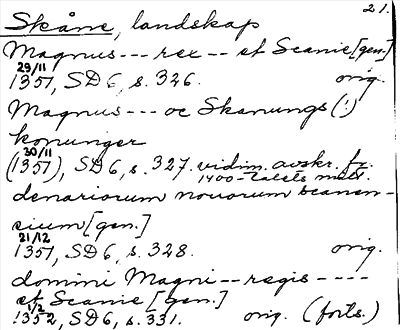 21.
Skåne, landskap
Magnus --- rex -- et Scanie [gen.]
29/11
1351, SD6, s. 326. orig.
Magnus --- oc Skanungs (!)
konunger
30/11
(1351), SD6, s. 327. vidim. avskr. fr.
1400-talets mitt.
denariorum nouorum scanen-
sium [gen.]
21/12
1351, SD6, s. 328. orig.
domini Magni -- regis ----
et Scanie [gen.]
1/2
1352, SD6, s. 331. orig. (forts.)